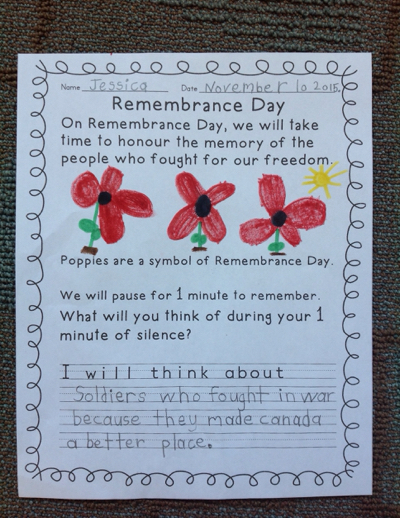 Name Jessica Date November 10 2015.
Remembrance Day
On Remembrance Day, we will take
time to honour the memory of the
people who fought for our freedom.
Poppies are a symbol of Remembrance Day.
We will pause for 1 minute to remember.
What will you think of during your 1
minute of silence?
I will think about
Soldiers who fought in war
because they made canada
a better place.